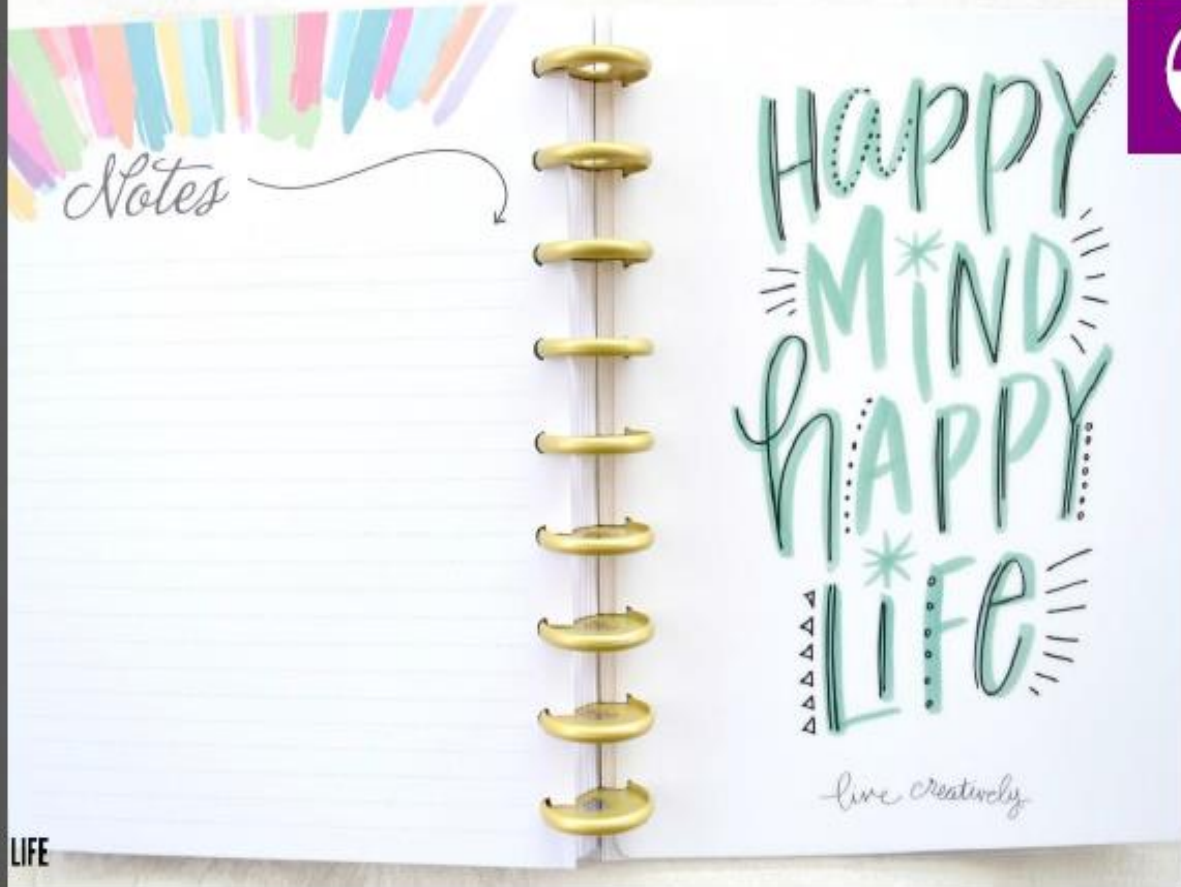 Notes
HaPPY
MiND
hAPPY
LiFe
live creatively
LIFE